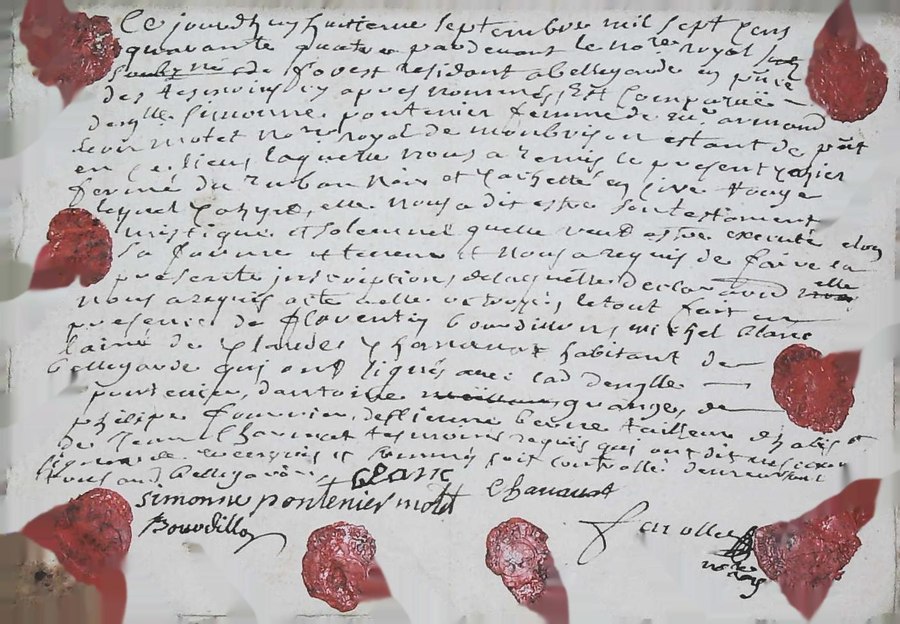 Ce jourdhuy huitieme septembre mil sept cens
quarante quatre pardevant le no.re royal
soubzné de forest residant a bellegarde en
des tesmoins cy apres nommés, Est Comparüe
dem.lle Simonne pontenier femme de armand
motet no.re royal de monbrison estant de
en ce lieu, laquelle nous a remis le present cahier
fermé du ruban noir et cachetté en cire rouge
lequel elle nous a dit estre son testament
mistique et solemnel quelle veut estre executé
sa forme et teneur et nous a requis de faire la
presente inscription, de laquelle declaration elle
nous a requis acte a elle octroyé, le tout fait en
presence de florentin bourdillon, michel blanc
laine de Claude Chanaust habitant de
bellegarde qui ont signés avec lad. dem.lle
pontenier, dantoine granger, de
philipe fournier, destienne tailleur
de Jean tesmoins requis qui ont dit ne scavoir
signer de enquis et sommés soit controllé
blanc
simonne pontenier motet Chanaust
Bourdillon